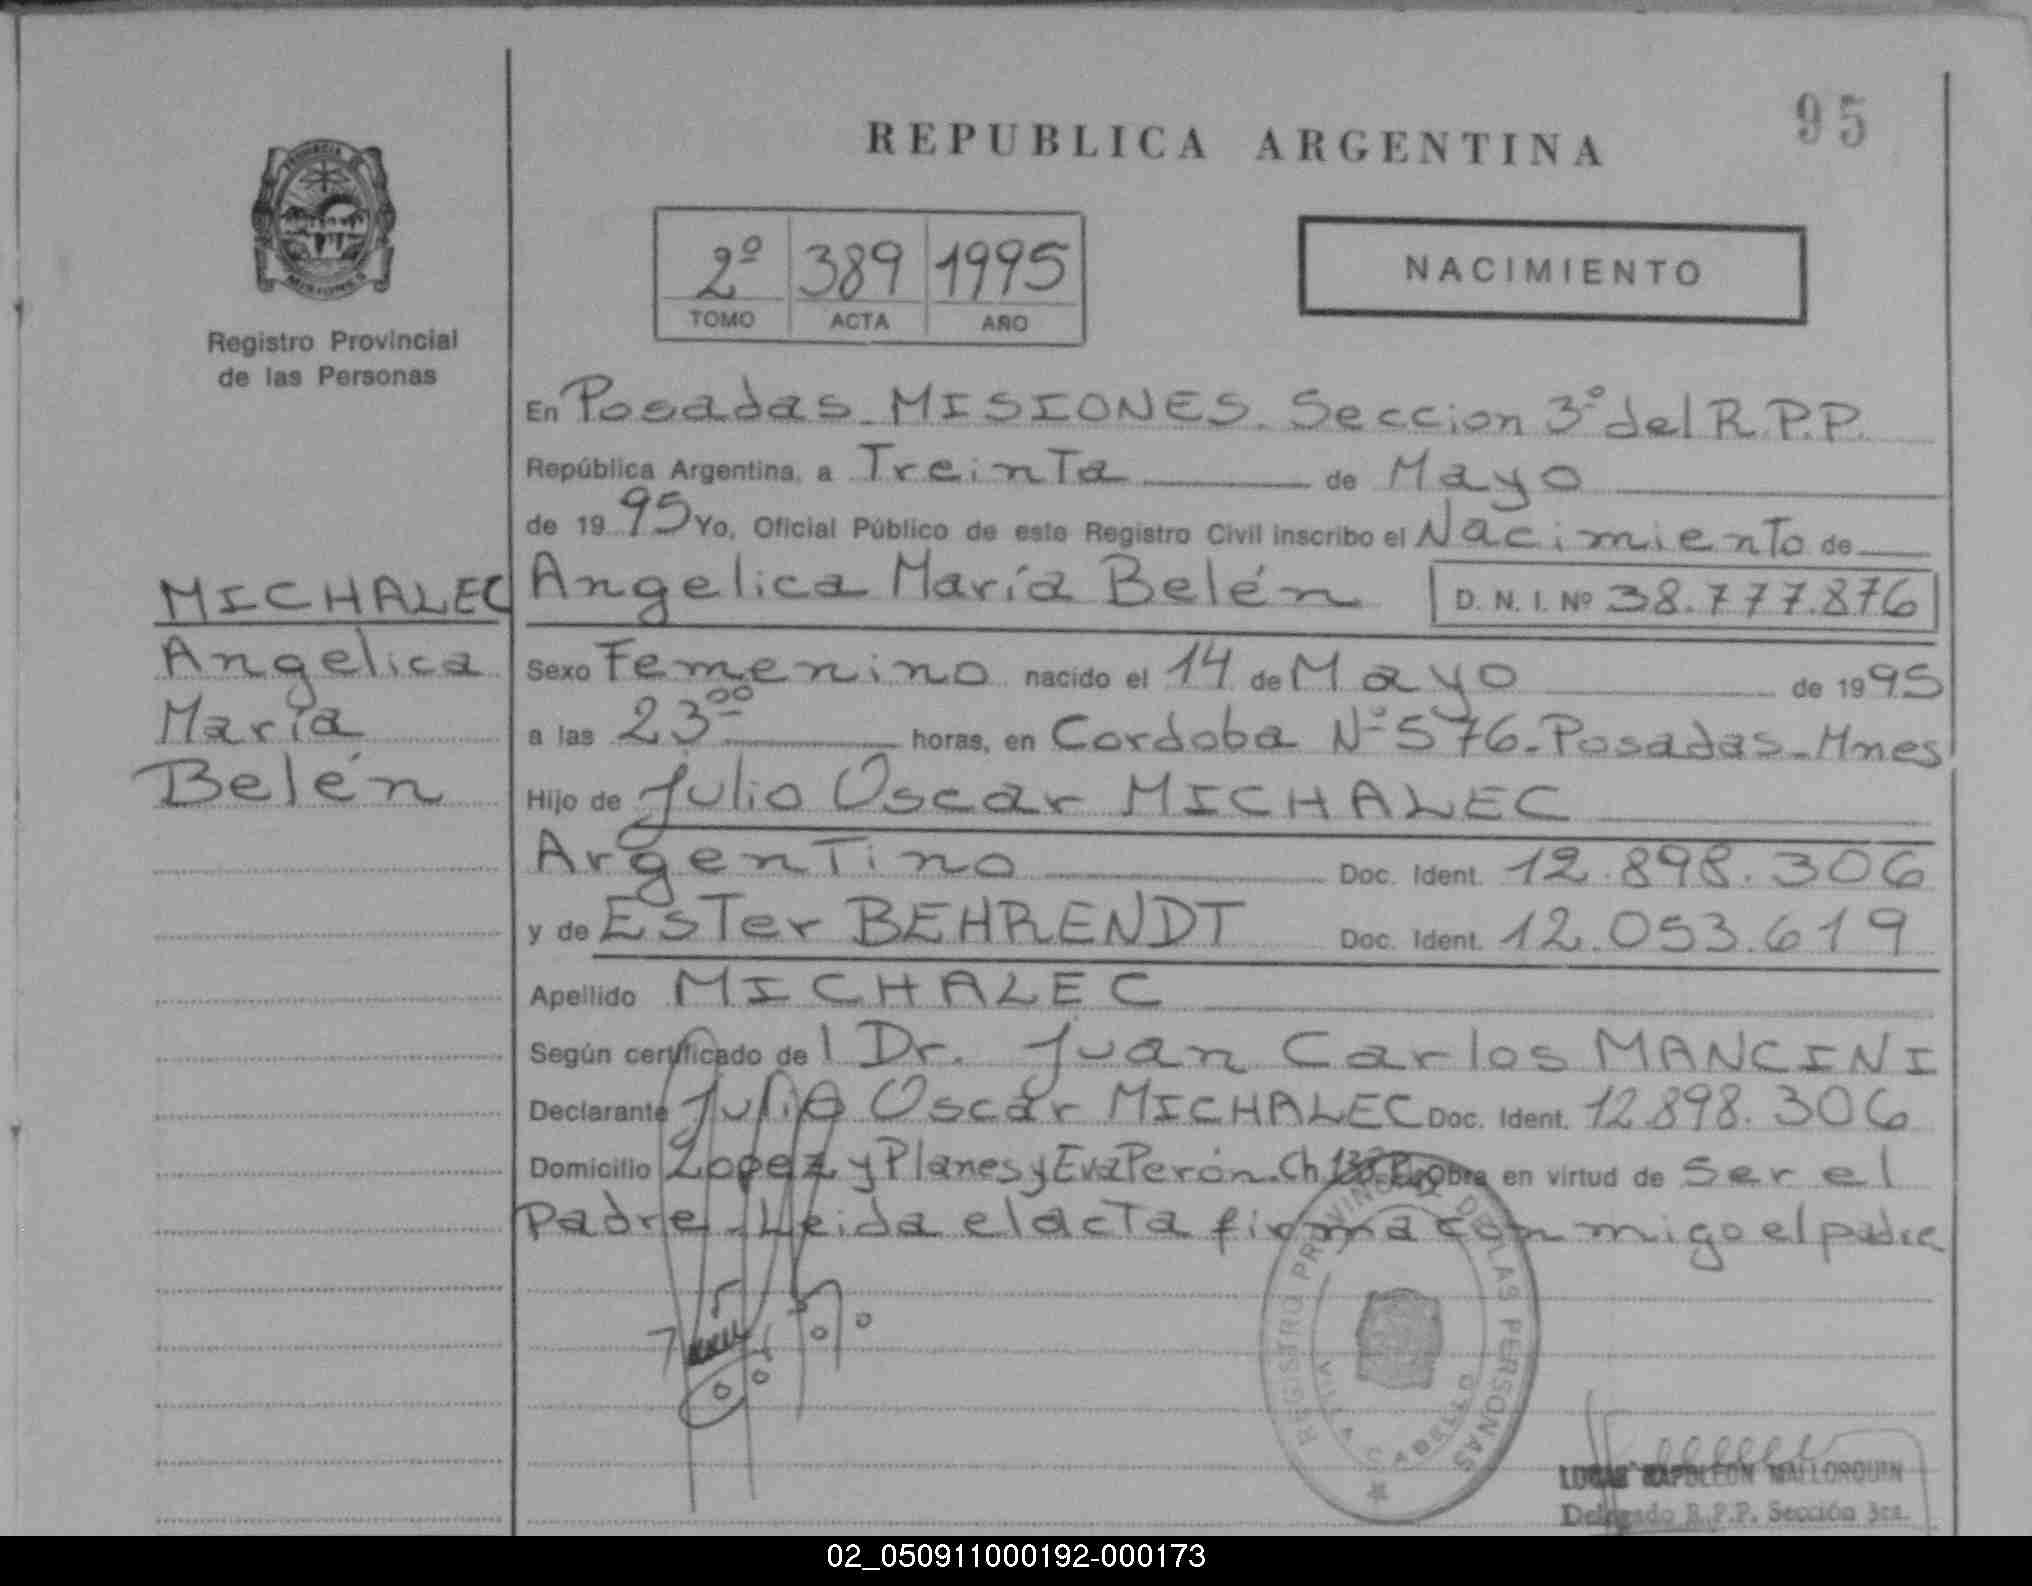 95
REPUBLICA ARGENTINA
2º 389 1995
TOMO ACTA AÑO
NACIMIENTO
Registro Provincial
de las Personas
MICHALEC
Angelica
María
Belén
En Posadas - MISIONES. Seccion 3º del R.P.P.
República Argentina, a Treinta de Mayo
de 1995 Yo, Oficial Público de este Registro Civil inscribo el Nacimiento de
Angelica María Belén D. N. I. Nº 38.777.876
Sexo Femenino nacido el 14 de Mayo de 1995
a las 23ºº horas, en Cordoba Nº 576 - Posadas - Mnes
Hijo de Julio Oscar MICHALEC
Argentino Doc. Ident. 12.898.306
y de Ester BEHRENDT Doc. Ident. 12.053.619
Apellido MICHALEC
Según certificado del Dr. Juan Carlos MANCINI
Declarante Julio Oscar MICHALEC Doc. Ident. 12.898.306
Domicilio Lopez y Planes y Eva Perón. Ch. Obra en virtud de ser el
Padre - Leida el acta firma con migo el padre
REGISTRO PROVINCIAL DE LAS PERSONAS
NAPOLEON MALLORQUIN
Delegado R.P.P. Sección 3ra.
02_050911000192-000173